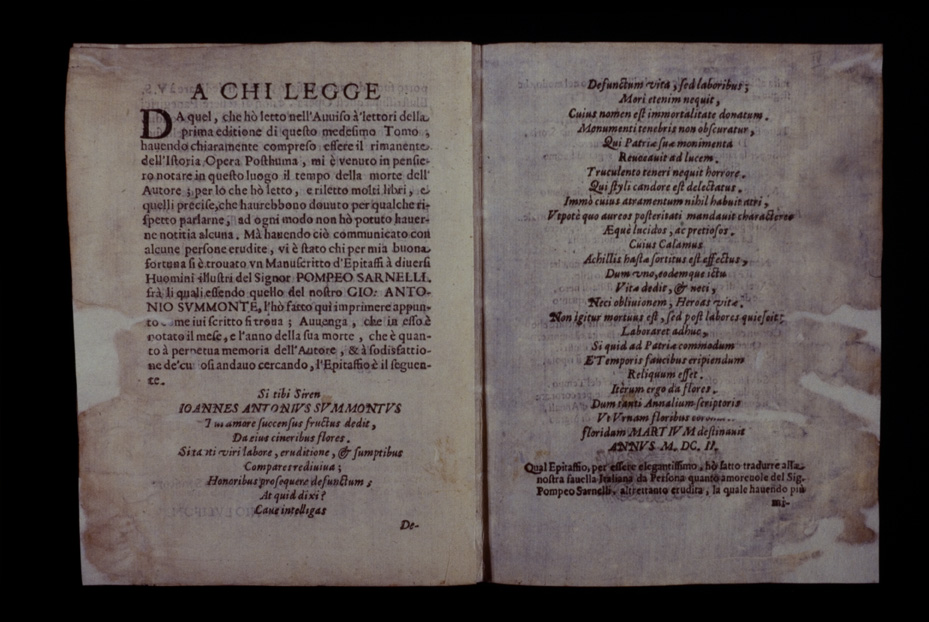 A CHI LEGGE
DA quel, che hò letto nell'Auuiso à lettori della
prima editione di questo medesimo Tomo;
hauendo chiaramente compreso essere il rimanente
dell'Istoria Opera Posthuma, mi è venuto in pensie-
ro notare in questo luogo il tempo della morte dell'
Autore; per lo che hò letto, e riletto molti libri, e
quelli precise, che haurebbono douuto per qualche ri-
spetto parlarne, ad ogni modo non hò potuto hauer-
ne notitia alcuna. Mà hauendo ciò communicato con
alcune persone erudite, vi è stato chi per mia buona
fortuna si è trouato vn Manuscritto d'Epitaffi à diuersi
Huomini illustri del Signor POMPEO SARNELLI,
frà li quali essendo quello del nostro GIO: ANTO-
NIO SVMMONTE, l'hò fatto quì imprimere appun-
to come iui scritto si troua; Auuenga, che in esso è
notato il mese, e l'anno della sua morte, che è quan-
to à perpetua memoria dell'Autore, & à sodisfattio-
ne de' curiosi andauo cercando, l'Epitaffio è il seguen-
te.
Si tibi Siren
IOANNES ANTONIVS SVMMONTVS
Tui amore succensus fructus dedit,
Da eius cineribus flores.
Si tanti viri labore, eruditione, & sumptibus
Compares rediuiua;
Honoribus prosequere defunctum;
At quid dixi?
Caue intelligas
De-
Defunctum vita, sed laboribus;
Mori etenim nequit,
Cuius nomen est immortalitate donatum.
Monumenti tenebris non obscuratur,
Qui Patriæ suæ monimenta
Reuocauit ad lucem.
Truculento teneri nequit horrore.
Qui styli candore est delectatus.
Immò cuius atramentum nihil habuit atri,
Vtpotè quo aureos posteritati mandauit characteres
Æquè lucidos, ac pretiosos.
Cuius Calamus
Achillis hastæ sortitus est effectus,
Dum vno, eodemque ictu
Vitæ dedit, & neci,
Neci obliuionem, Heroas vitæ.
Non igitur mortuus est, sed post labores quiescit;
Laboraret adhuc,
Si quid ad Patriæ commodum
ET Temporis faucibus eripiendum
Reliquum esset.
Iterùm ergo da flores.
Dum tanti Annalium scriptoris
Vt Vrnam floribus
floridum MARTIVM destinauit
ANNVS M. DC. II.
Qual Epitaffio, per essere elegantissimo, hò fatto tradurre alla
nostra fauella Italiana da Persona quanto amoreuole del Sig.
Pompeo Sarnelli, altrettanto erudita, la quale hauendo più
mi-